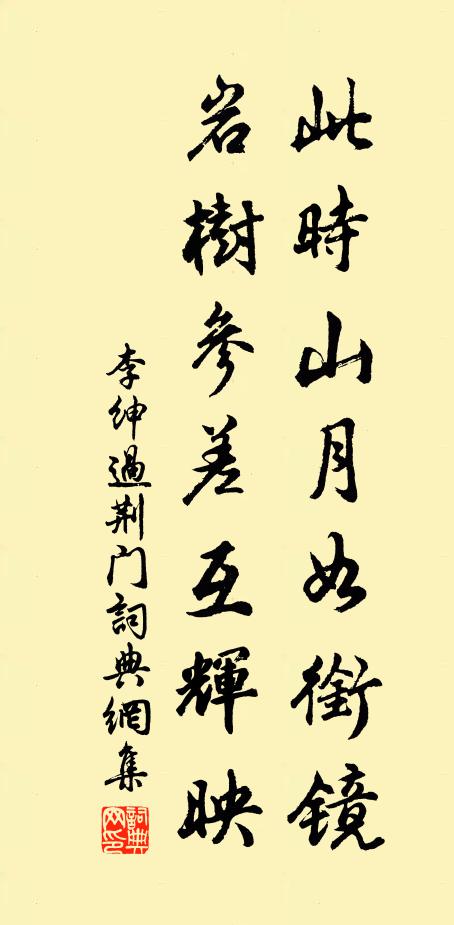 此時山月如銜鏡
岩樹參差互輝映
李紳過荆门詞典網集
詞典网印